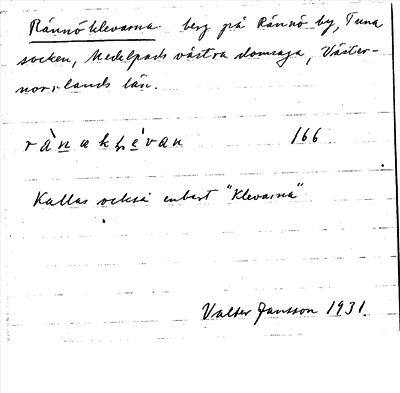 Rännö klevarna berg på Rännö by, Tuna
socken, Medelpads västra domsaga, Väster-
norrlands län.
166
Kallas också enbart "Klevarna"
Valter Jansson 1931.